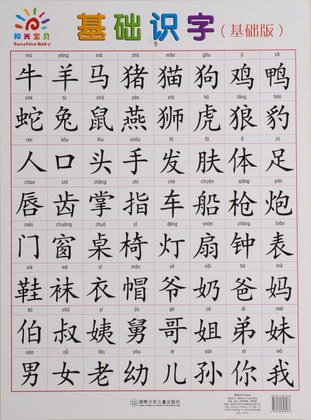 阳光宝贝
Sunshine Baby
基础识字（基础版）
niú yáng mǎ zhū māo gǒu jī yā
牛 羊 马 猪 猫 狗 鸡 鸭
shé tù shǔ yàn shī hǔ láng bào
蛇 兔 鼠 燕 狮 虎 狼 豹
rén kǒu tóu shǒu fà fū tǐ zú
人 口 头 手 发 肤 体 足
chún chǐ zhǎng zhǐ chē chuán qiāng pào
唇 齿 掌 指 车 船 枪 炮
门 窗 桌 椅 灯 扇 钟 表
xié wà yī mào yé nǎi bà mā
鞋 袜 衣 帽 爷 奶 爸 妈
bó shū yí jiù gē jiě dì mèi
伯 叔 姨 舅 哥 姐 弟 妹
nán nǚ lǎo yòu ér sūn nǐ wǒ
男 女 老 幼 儿 孙 你 我
湖南少年儿童出版社